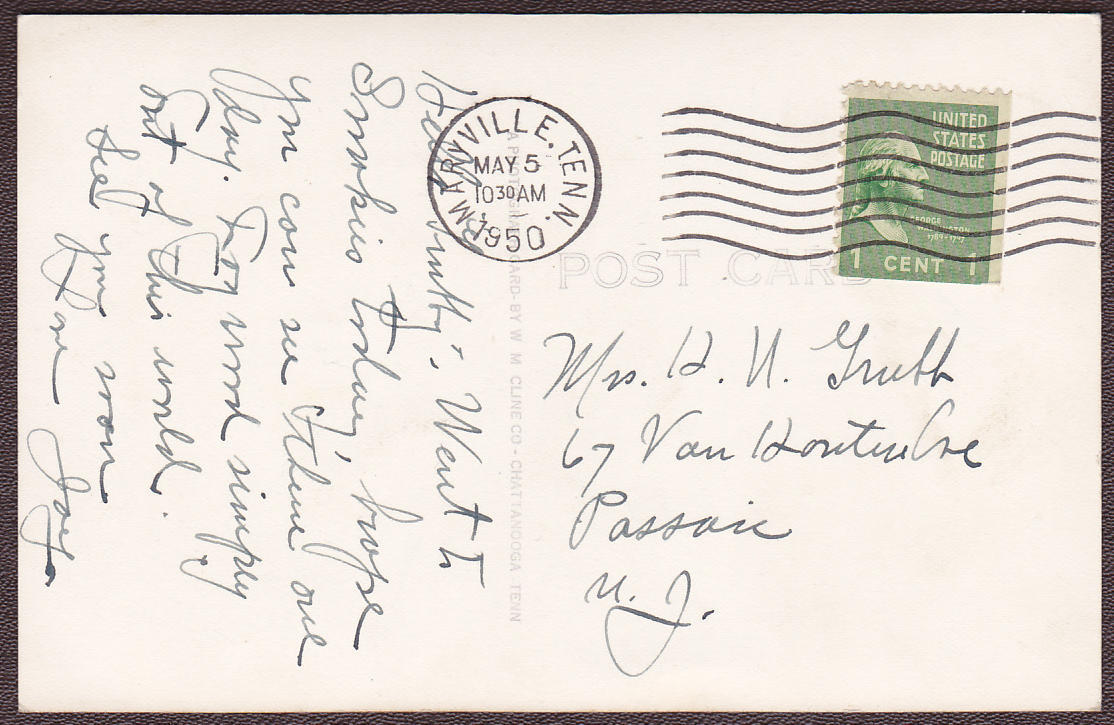 MARYVILLE. TENN.
MAY 5
10 30 AM
1950
UNITED
STATES
POSTAGE
GEORGE
WASHINGTON
1789-1797
1 CENT 1
POST CARD
A PHOTOGRAPHIC CARD-BY W M CLINE CO - CHATTANOOGA TENN
Went to
Smokies today, hope
you can see them one
day. Too wood simply
out of this world.
See you soon
Love Joey
Mrs. H. N. Grubb
67 Van Houten Ave
Passaic
N. J.